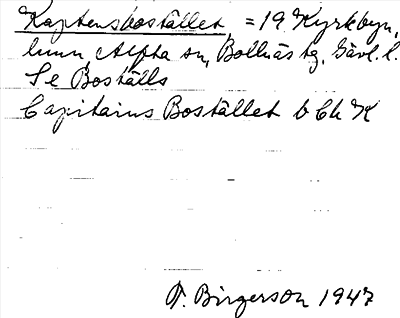 Kaptensbostället, = 19 Kyrkbyn,
Alfta sn, Bollnäs tg, Gävl. l.
Se Boställs
Capitains Bostället b Ch K
T. Birgerson 1947